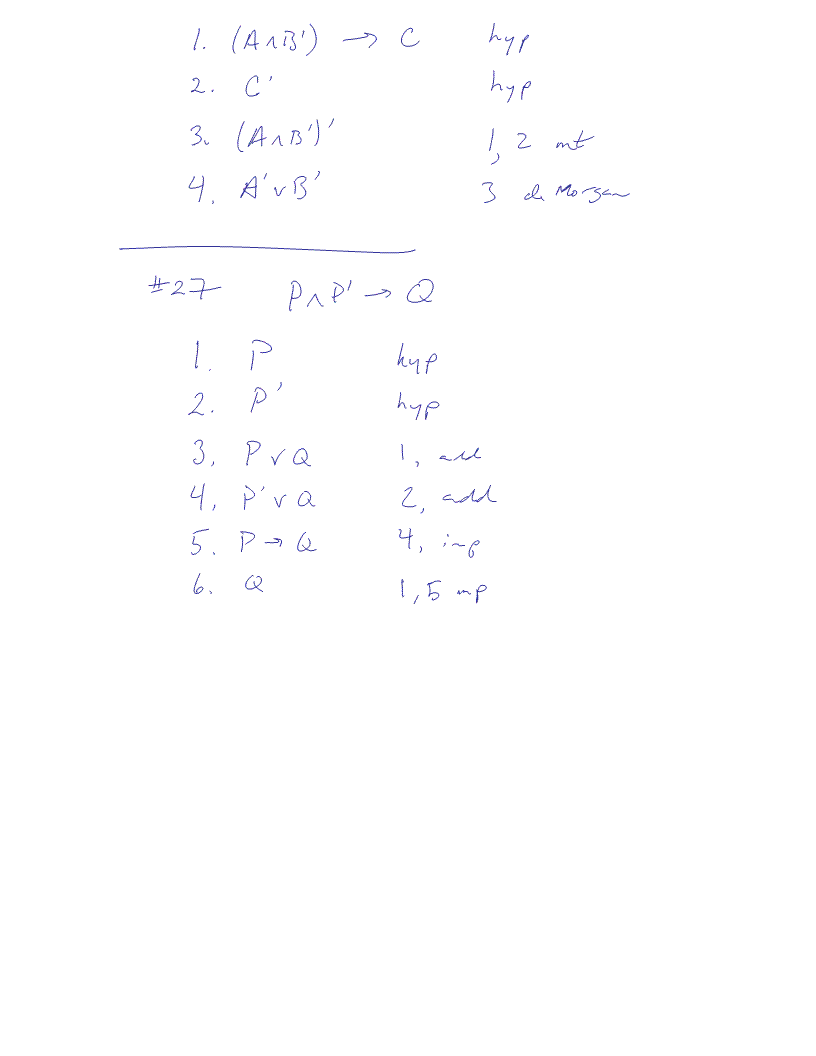 1. (A∧B') → C hyp
2. C' hyp
3. (A∧B')' 1, 2 mt
4. A'∨B' 3 de Morgan
#27 P∧P' → Q
1. P hyp
2. P' hyp
3, P∨Q 1, add
4, P'∨Q 2, add
5. P→Q 4, imp
6. Q 1,5 mp